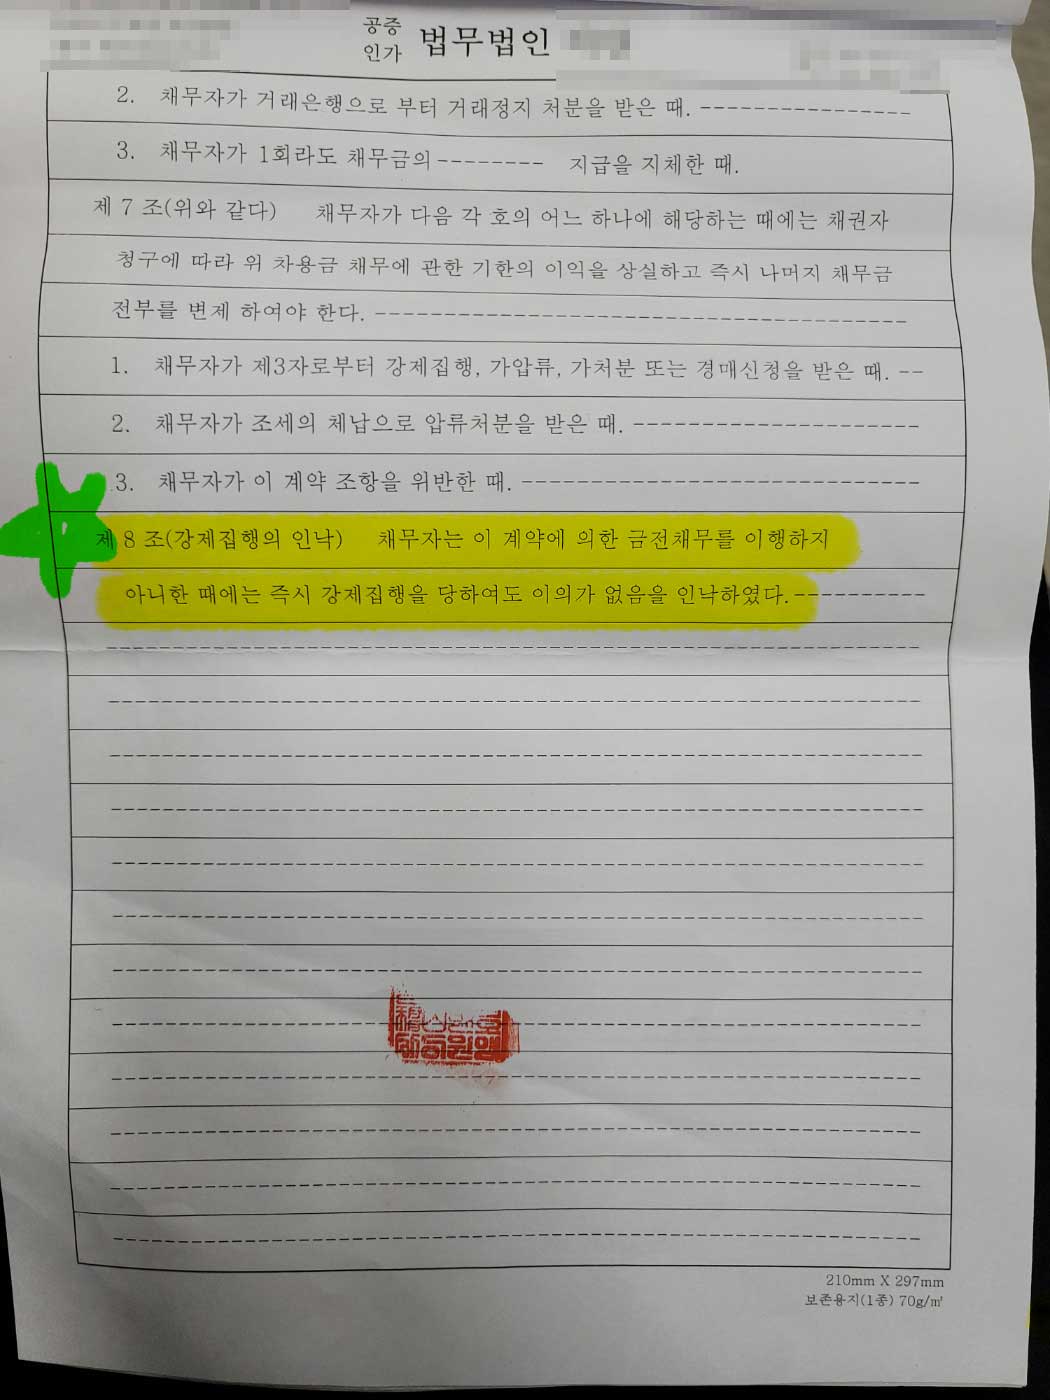 공증
인가 법무법인
2. 채무자가 거래은행으로 부터 거래정지 처분을 받은 때. ----------------
3. 채무자가 1회라도 채무금의 -------- 지급을 지체한 때.
제 7 조(위와 같다) 채무자가 다음 각 호의 어느 하나에 해당하는 때에는 채권자
청구에 따라 위 차용금 채무에 관한 기한의 이익을 상실하고 즉시 나머지 채무금
전부를 변제 하여야 한다. ---------------------------------------
1. 채무자가 제3자로부터 강제집행, 가압류, 가처분 또는 경매신청을 받은 때. --
2. 채무자가 조세의 체납으로 압류처분을 받은 때. ---------------------
3. 채무자가 이 계약 조항을 위반한 때. -----------------------------
제 8 조(강제집행의 인낙) 채무자는 이 계약에 의한 금전채무를 이행하지
아니한 때에는 즉시 강제집행을 당하여도 이의가 없음을 인낙하였다. ----------
210mm X 297mm
보존용지(1종) 70g/㎡